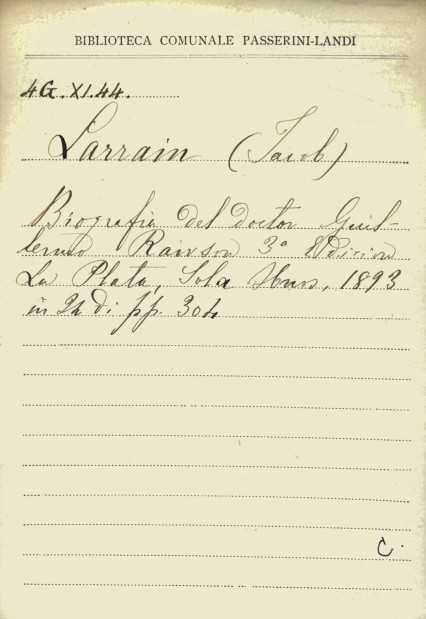 BIBLIOTECA COMUNALE PASSERINI-LANDI
4G. XI. 44.
Larrain (Jacob)
Biografia del doctor Guil-
lermo Rawson 3ª Edicion
La Plata, Sola Hnos, 1893
in 24 di pp. 304
C.